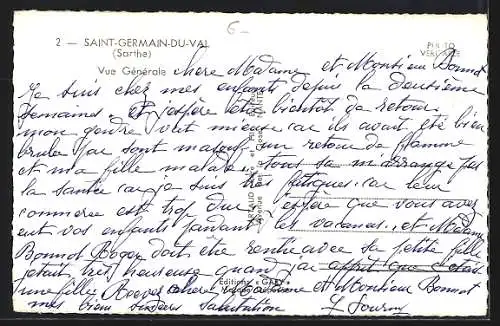 6-
2 — SAINT-GERMAIN-DU-VAL
(Sarthe)
Vue Générale
PHOTO
VERITABLE
chere Madame et Monsieur Bonnot
Je suis chez mes enfants depuis la deuxième
semaines et j'espère être bientôt de retour
mon gendre vat mieux car ils avait été bien
brule par sont un retour de flamme
et ma fille malade tous sa m'arrange pas
la santée car je suis très fatiguée car leur
commerce est trop dur j'espère que vous avez
eut vos enfants pendant les vacances et Madame
Bonnot Roger doit être rentrée avec sa petite fille
j'était très heureuse quand j'ai apprit que c'était
une fille Recevez chere Madame et Monsieur Bonnot
mes bien sincères salutation
Editions "GABY"